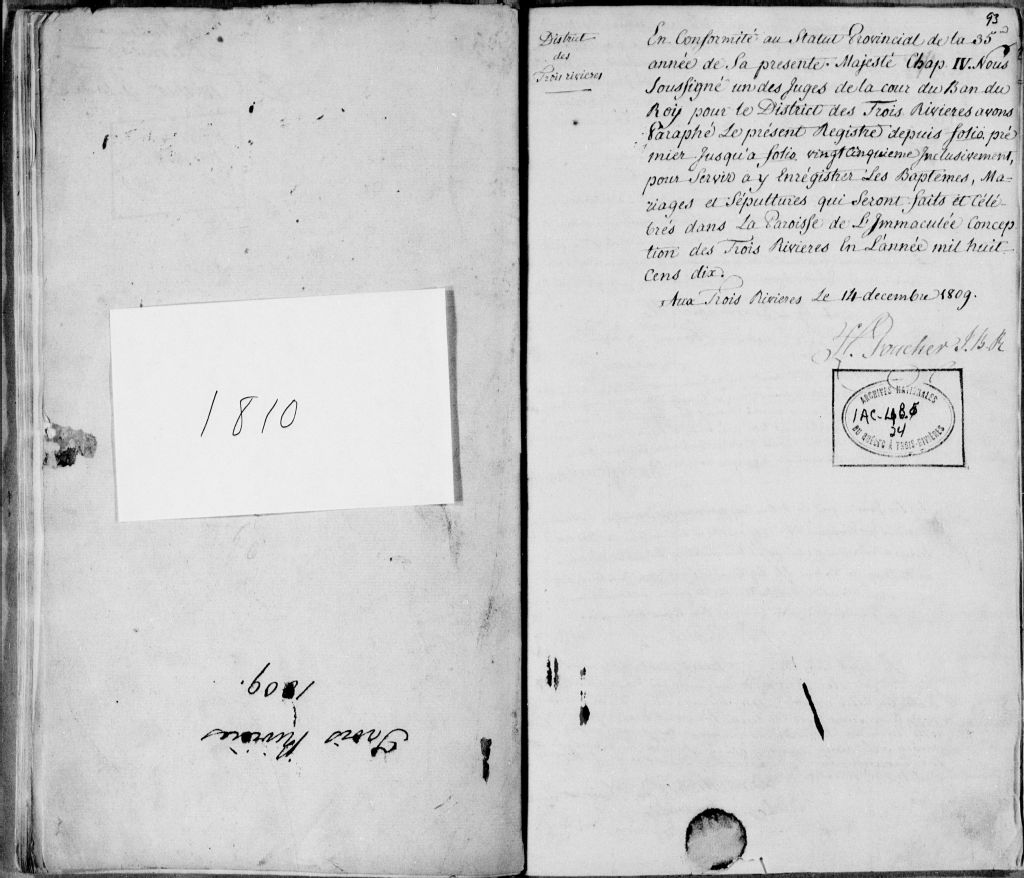 1810
Trois Rivieres
1809.
93
District
des
Trois rivieres
En Conformité au Statut Provincial de la 35e
année de Sa presente Majesté Chap. IV. Nous
Soussigné un des Juges de la cour du Ban du
Roy pour le District des Trois Rivieres avons
Paraphé Le présent Registre depuis folio pré
mier Jusqu'a folio vingt Cinquieme Inclusivement,
pour Servir a y Enrégistrer Les Baptêmes, Ma-
riages et Sépultures qui Seront faits et Célé-
brés dans La Paroisse de L'Immaculée Concep
tion des Trois Rivieres En L'année mil huit
Cens dix.
Aux Trois Rivieres Le 14 decembre 1809.
Foucher J.B.R
ARCHIVES NATIONALES
1AC-
34
DU QUÉBEC À TROIS-RIVIÈRES